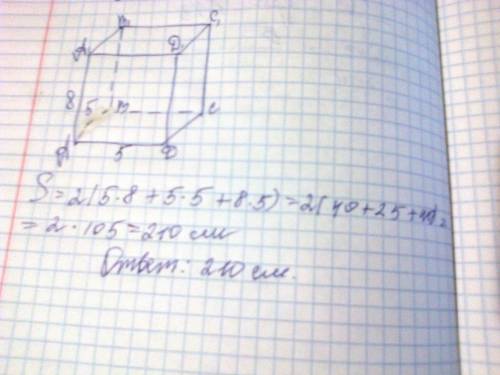 B₁ C₁
A₁ D₁
8 5 B C
A 5 D
S = 2(5·8 + 5·5 + 8·5) = 2(40 + 25 + 40) =
= 2 · 105 = 210 см
Ответ: 210 см.